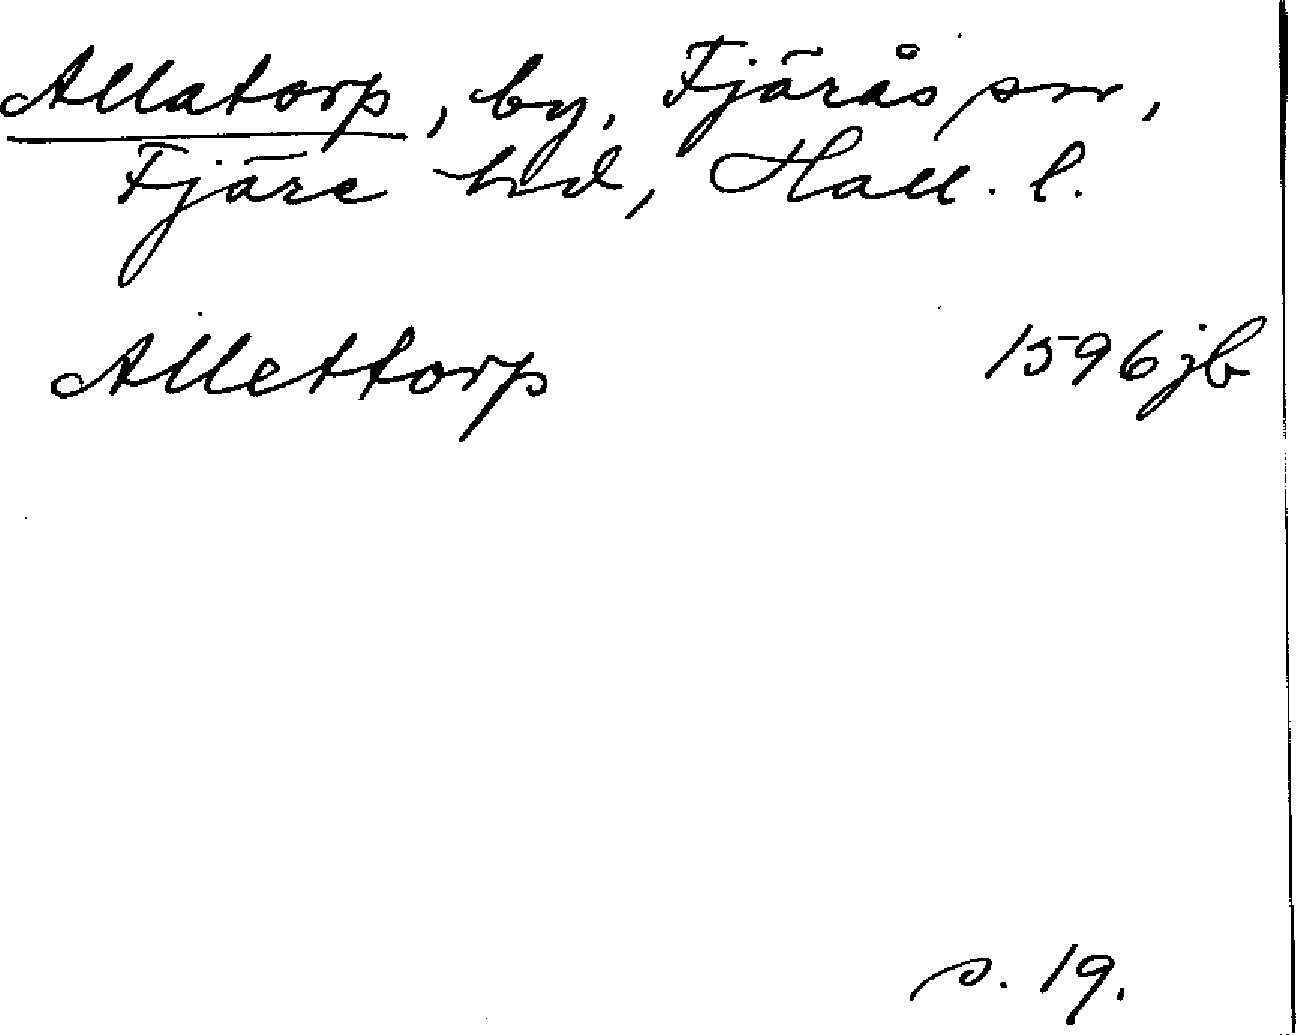 Allatorp, by, Fjärås sn,
Fjäre hd, Hall. l.
Allettorp 1596 jb
s. 19.